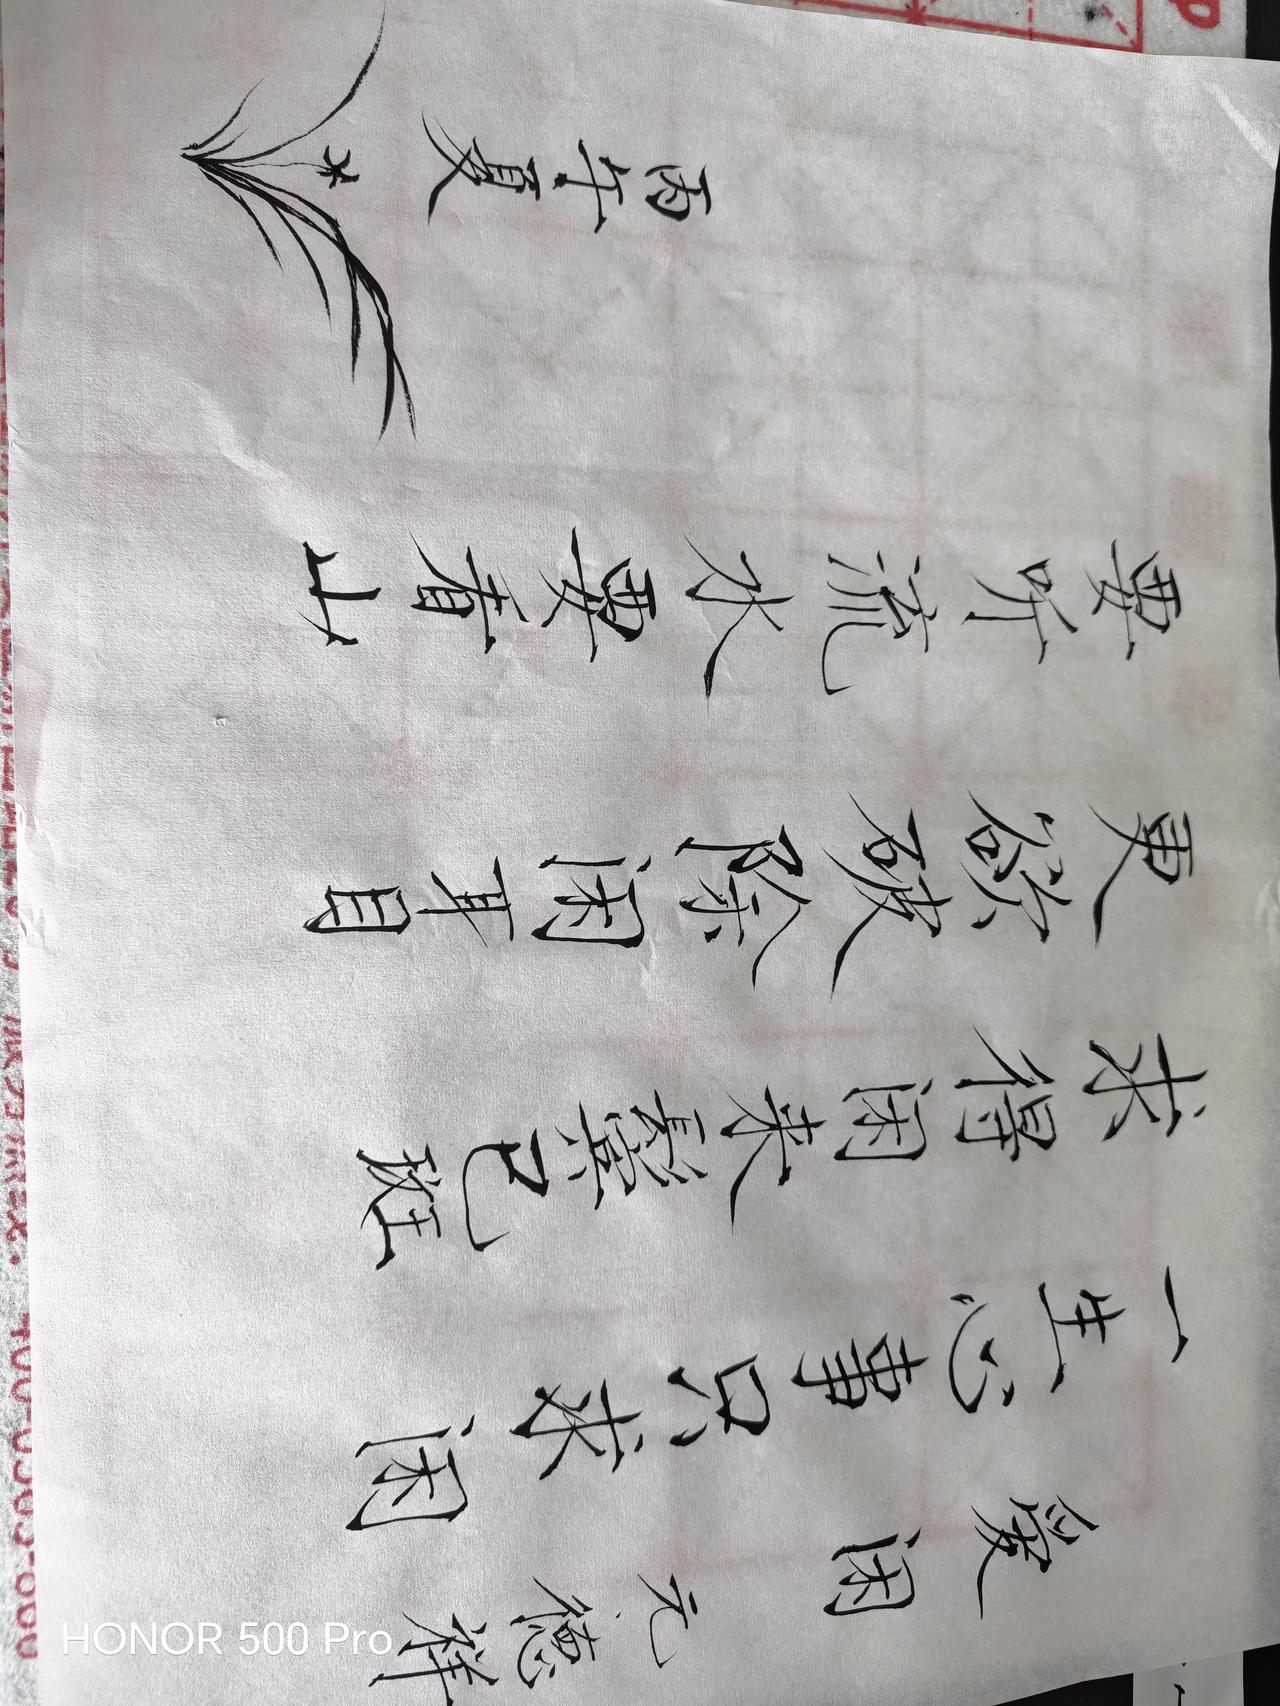 爱闲
元 德祥
一生心事只求闲
求得闲来鬓已斑
更欲破除闲耳目
要听流水要看山
丙午夏
HONOR 500 Pro